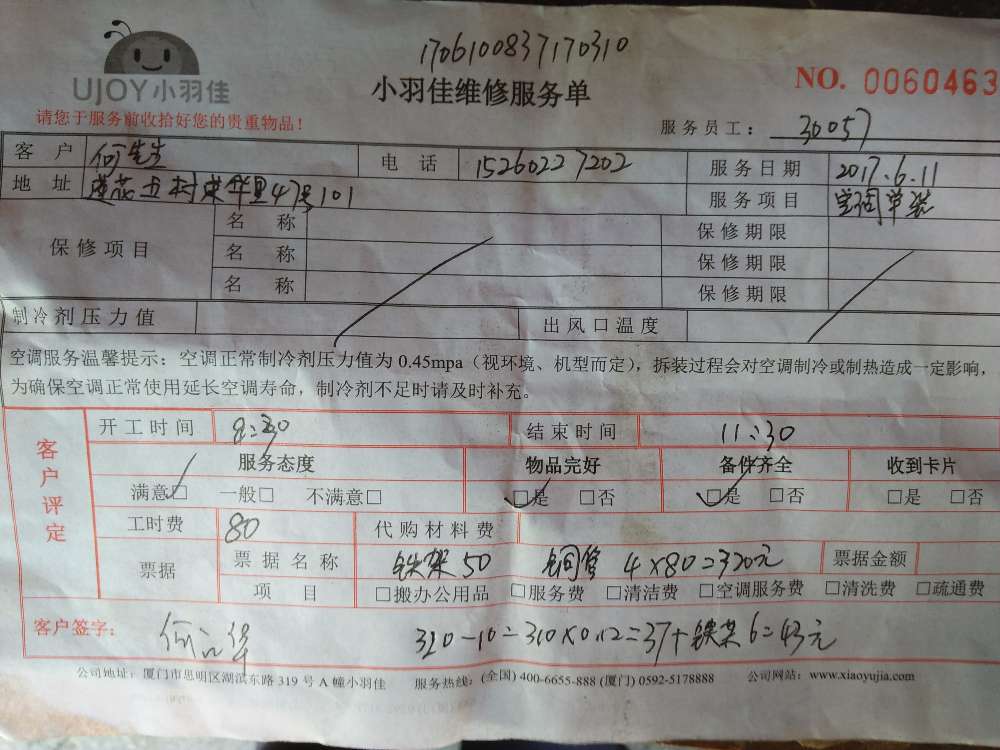 1706100837170310
UJOY小羽佳
小羽佳维修服务单
NO. 0060463
请您于服务前收拾好您的贵重物品！
服务员工： 30057
客户 何先生 电话 15260227202 服务日期 2017.6.11
地址 莲花五村荣华里47号101 服务项目 空调单装
保修项目 名称 保修期限
名称 保修期限
名称 保修期限
制冷剂压力值 出风口温度
空调服务温馨提示：空调正常制冷剂压力值为 0.45mpa（视环境、机型而定），拆装过程会对空调制冷或制热造成一定影响，
为确保空调正常使用延长空调寿命，制冷剂不足时请及时补充。
客户评定
开工时间 8:30 结束时间 11:30
服务态度 物品完好 备件齐全 收到卡片
满意□ 一般□ 不满意□ □是 □否 □是 □否 □是 □否
工时费 80 代购材料费
票据 票据名称 铁架50 铜管 4×80=320元 票据金额
项目 □搬办公用品 □服务费 □清洁费 □空调服务费 □清洗费 □疏通费
客户签字： 320-10=310×0.12=37+铁架6=43元
公司地址：厦门市思明区湖滨东路 319 号 A 幢小羽佳 服务热线：(全国) 400-6655-888 (厦门) 0592-5178888 公司网站：www.xiaoyujia.com